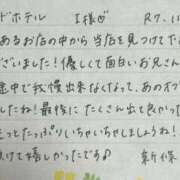 ドホテル　I様♡　R7.11
あるお店の中から当店を見つけてた
ございました！優しくて面白いお兄さん
途中で我慢出来なくなって、あのオプ
したね！最後にたくさん出て良かった
とったっぷりいちゃいちゃしましょうね！
けて嬉しかったです♪　新條